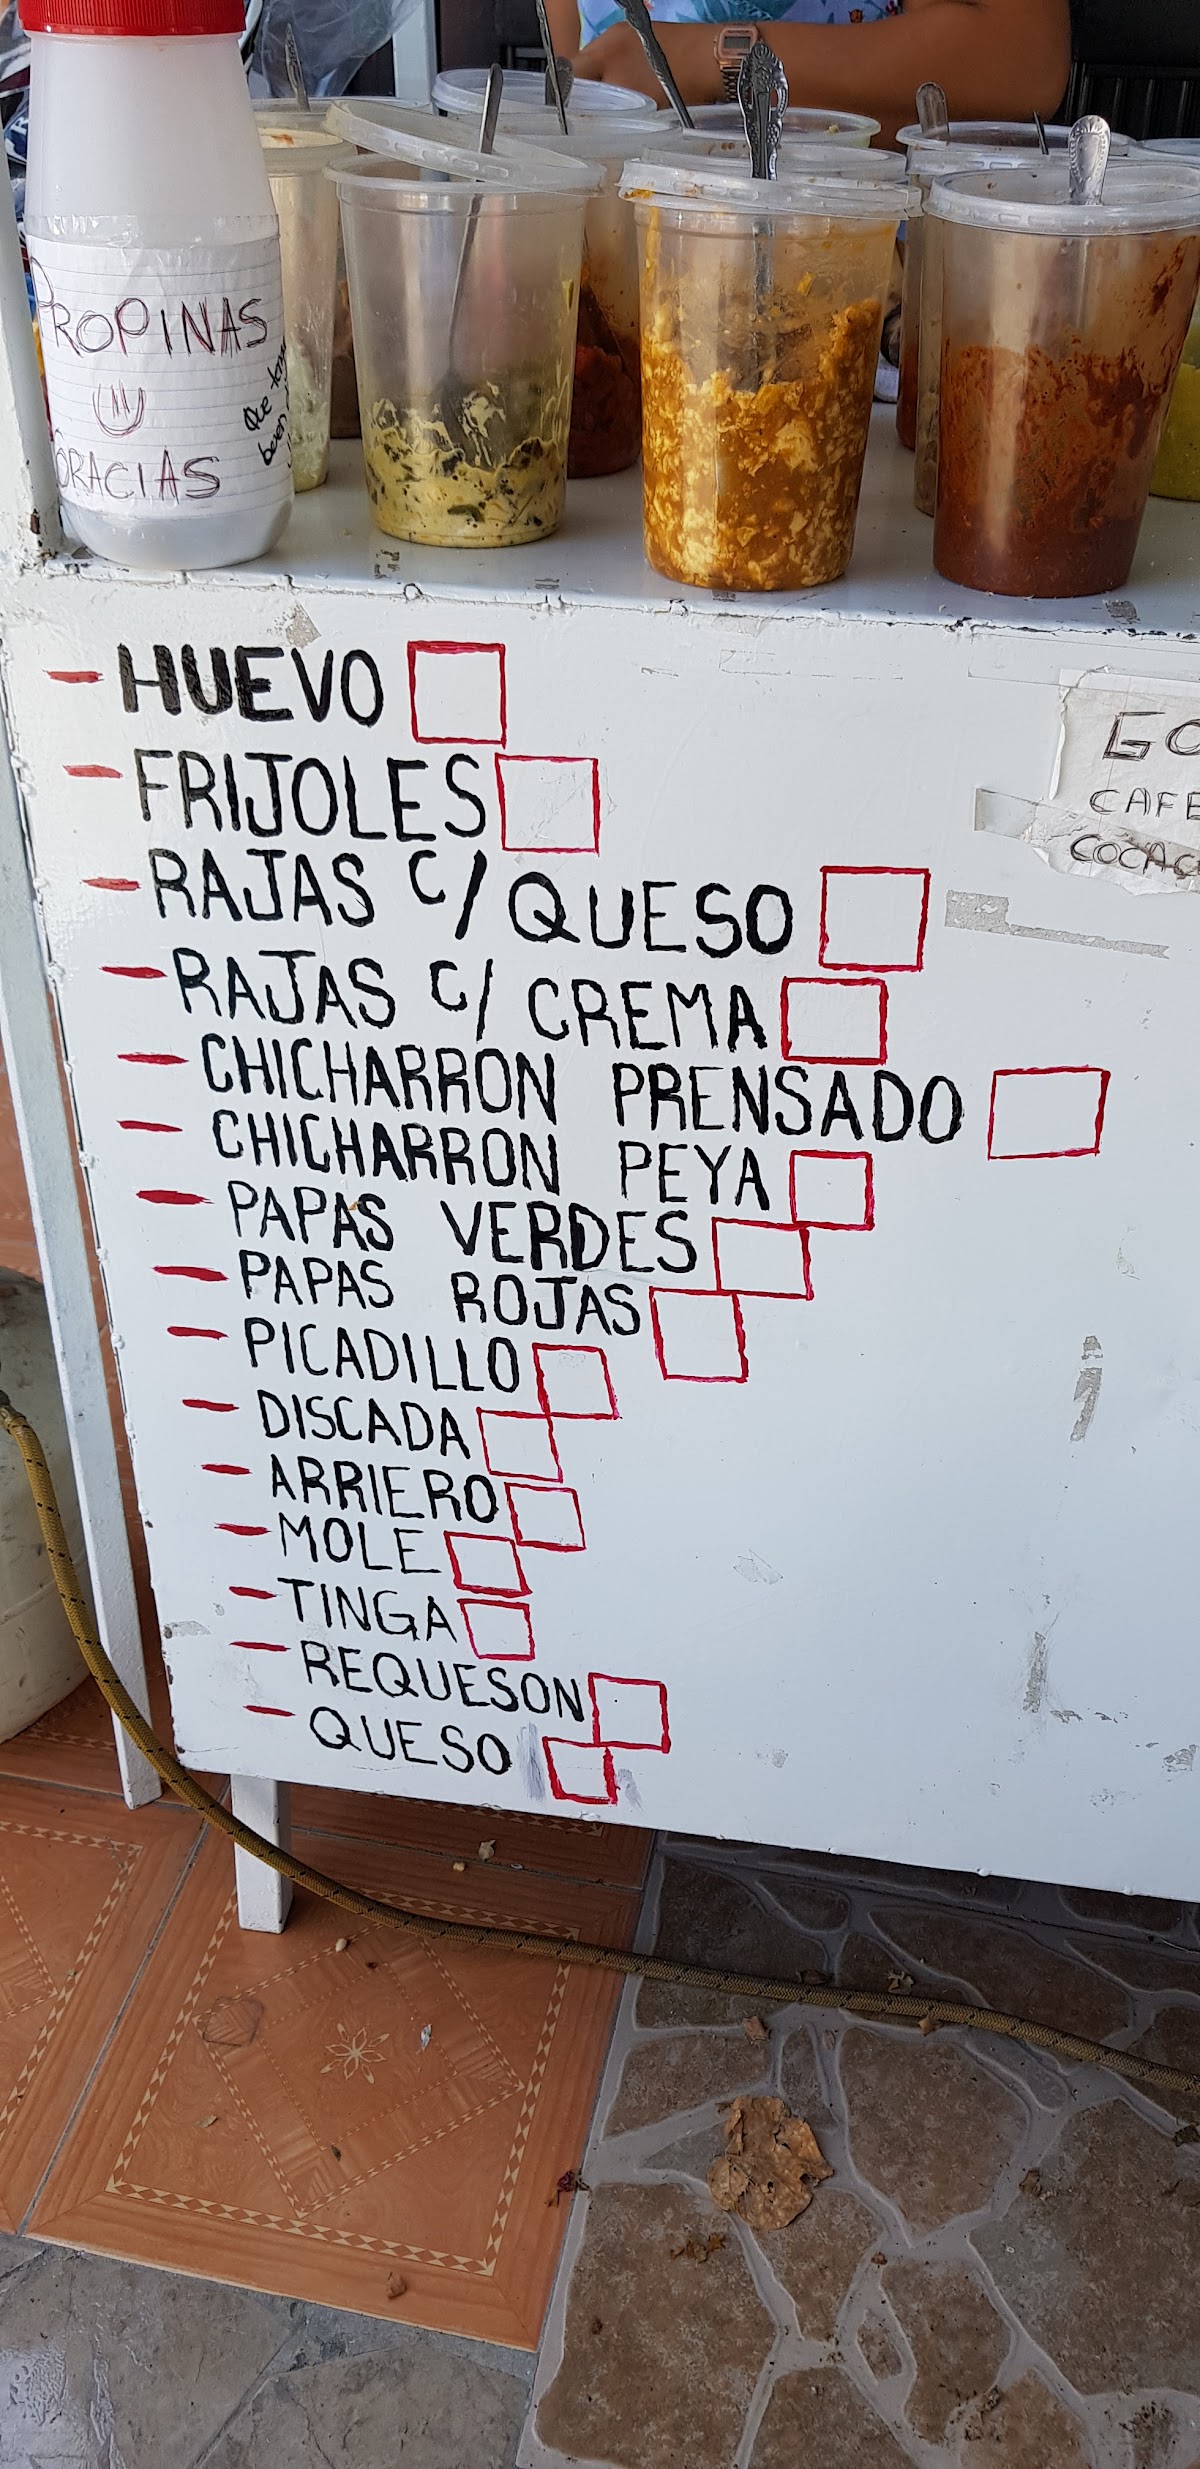 PROPINAS
GRACIAS
Que
- HUEVO
- FRIJOLES
- RAJAS C/ QUESO
- RAJAS C/ CREMA
- CHICHARRON PRENSADO
- CHICHARRON PEYA
- PAPAS VERDES
- PAPAS ROJAS
- PICADILLO
- DISCADA
- ARRIERO
- MOLE
- TINGA
- REQUESON
- QUESO
GO
CAFE
COCAC